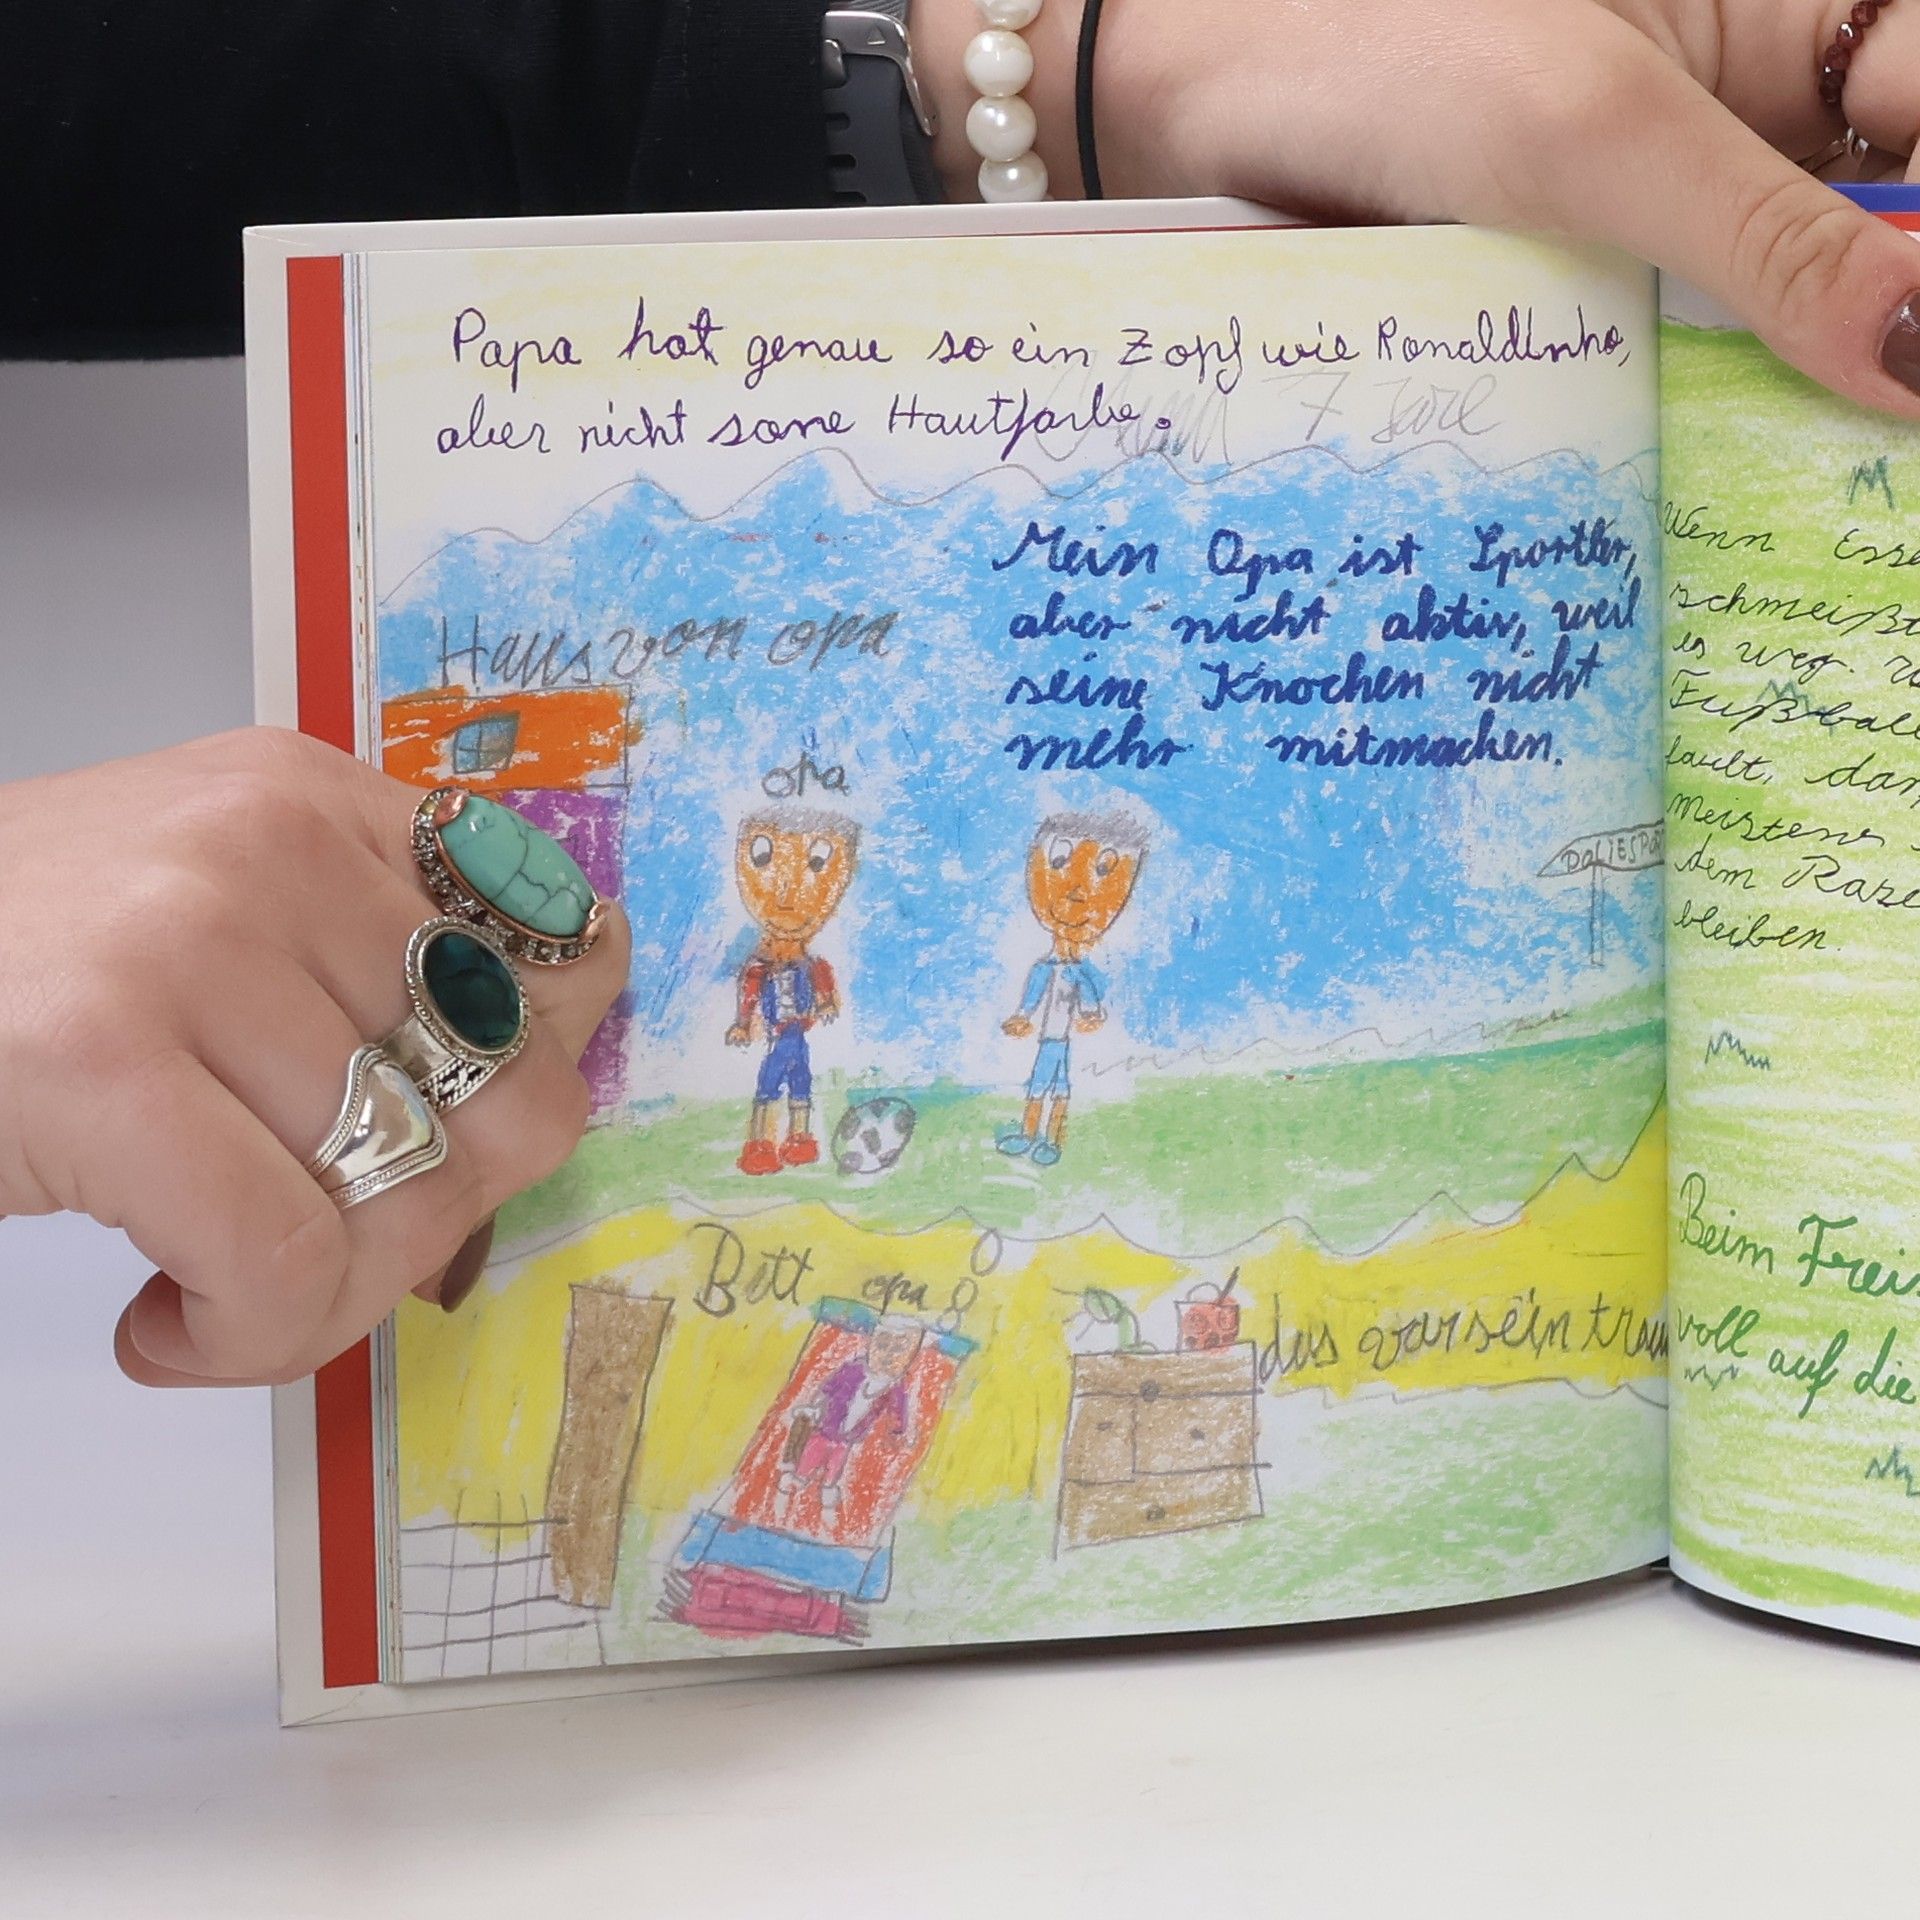 Papa hat genau so ein Zopf wie Ronaldinho,
aber nicht sone Hautfarbe.
7 Jare
Mein Opa ist Sportler,
aber nicht aktiv, weil
seine Knochen nicht
mehr mitmachen.
Haus von opa
opa
Bett opa
das war sein traum
Wenn Esse
schmeißt
es weg.
Fußball
fault, dan
meistens
dem Rase
bleiben.
Beim Freis
voll auf die